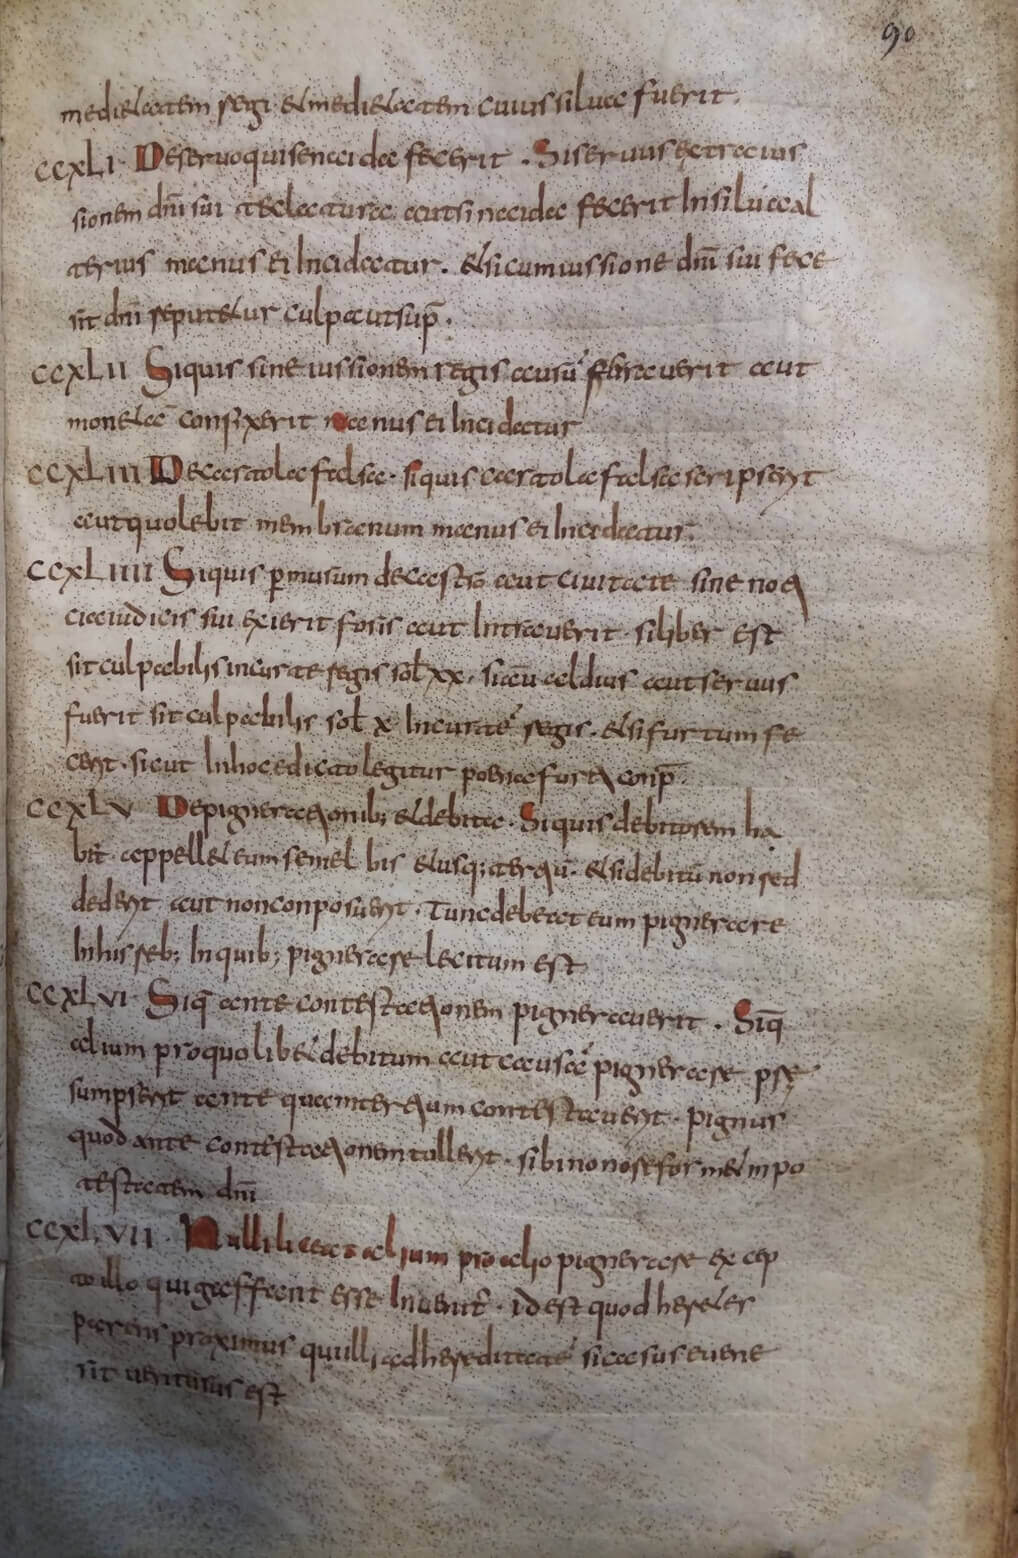 90
medietatem regi et medietatem cuius silva fuerit.
CCXLI. De servo qui se na ci da fecerit. Si servus extra ius
sionem dñi sui teclatura aut si necida fecerit in silva al
terius manus ei incidatur. et si cum iussione dñi sui fece
rit dñi reputetur culpa ut sup̄.
CCXLII Si quis sine iussionem regis aurū figuraverit aut
moneta confixerit manus ei incidatur
CCXLIII De cartola falsa. si quis cartola falsa scripserit
aut quolebit membranum manus ei incedatur.
CCXLIIII Si quis p̄ murum de castro aut civitate sine noti
cia iudicis sui exierit foris aut intraverit. si liber est
sit culpabilis in curte regis sol xx. si aū aldius aut servus
fuerit sit culpabilis sol x in curte regis. et si furtum fe
cerit. sicut in hoc edicto legitur poena furti conp̄.
CCXLV De pignerationib; et debita. Si quis debitorem ha
bit. appellet eum semel bis et usq; tertiū. et si debitū non red
dederit aut non conposuerit. Tunc debeat eum pignerare
in his reb; in quib; pignerare lecitum est
CCXLVI Siq̄ ante contestationem pigneraverit. Siq̄
alium pro quolibet debitum aut causa pignerare pre
sumpserit ante qua intertium contestaverit. pignus
quod ante contestationem tollerit. sibi nono reformet in po
testatem dñi
CCXLVII. Nulli liceat alium pro alio pignerare excep
to illo qui gaffant esse invenitr̄. id est quod heres eter
parens proximus qui illi ad hereditate si casus evene
rit venturus est